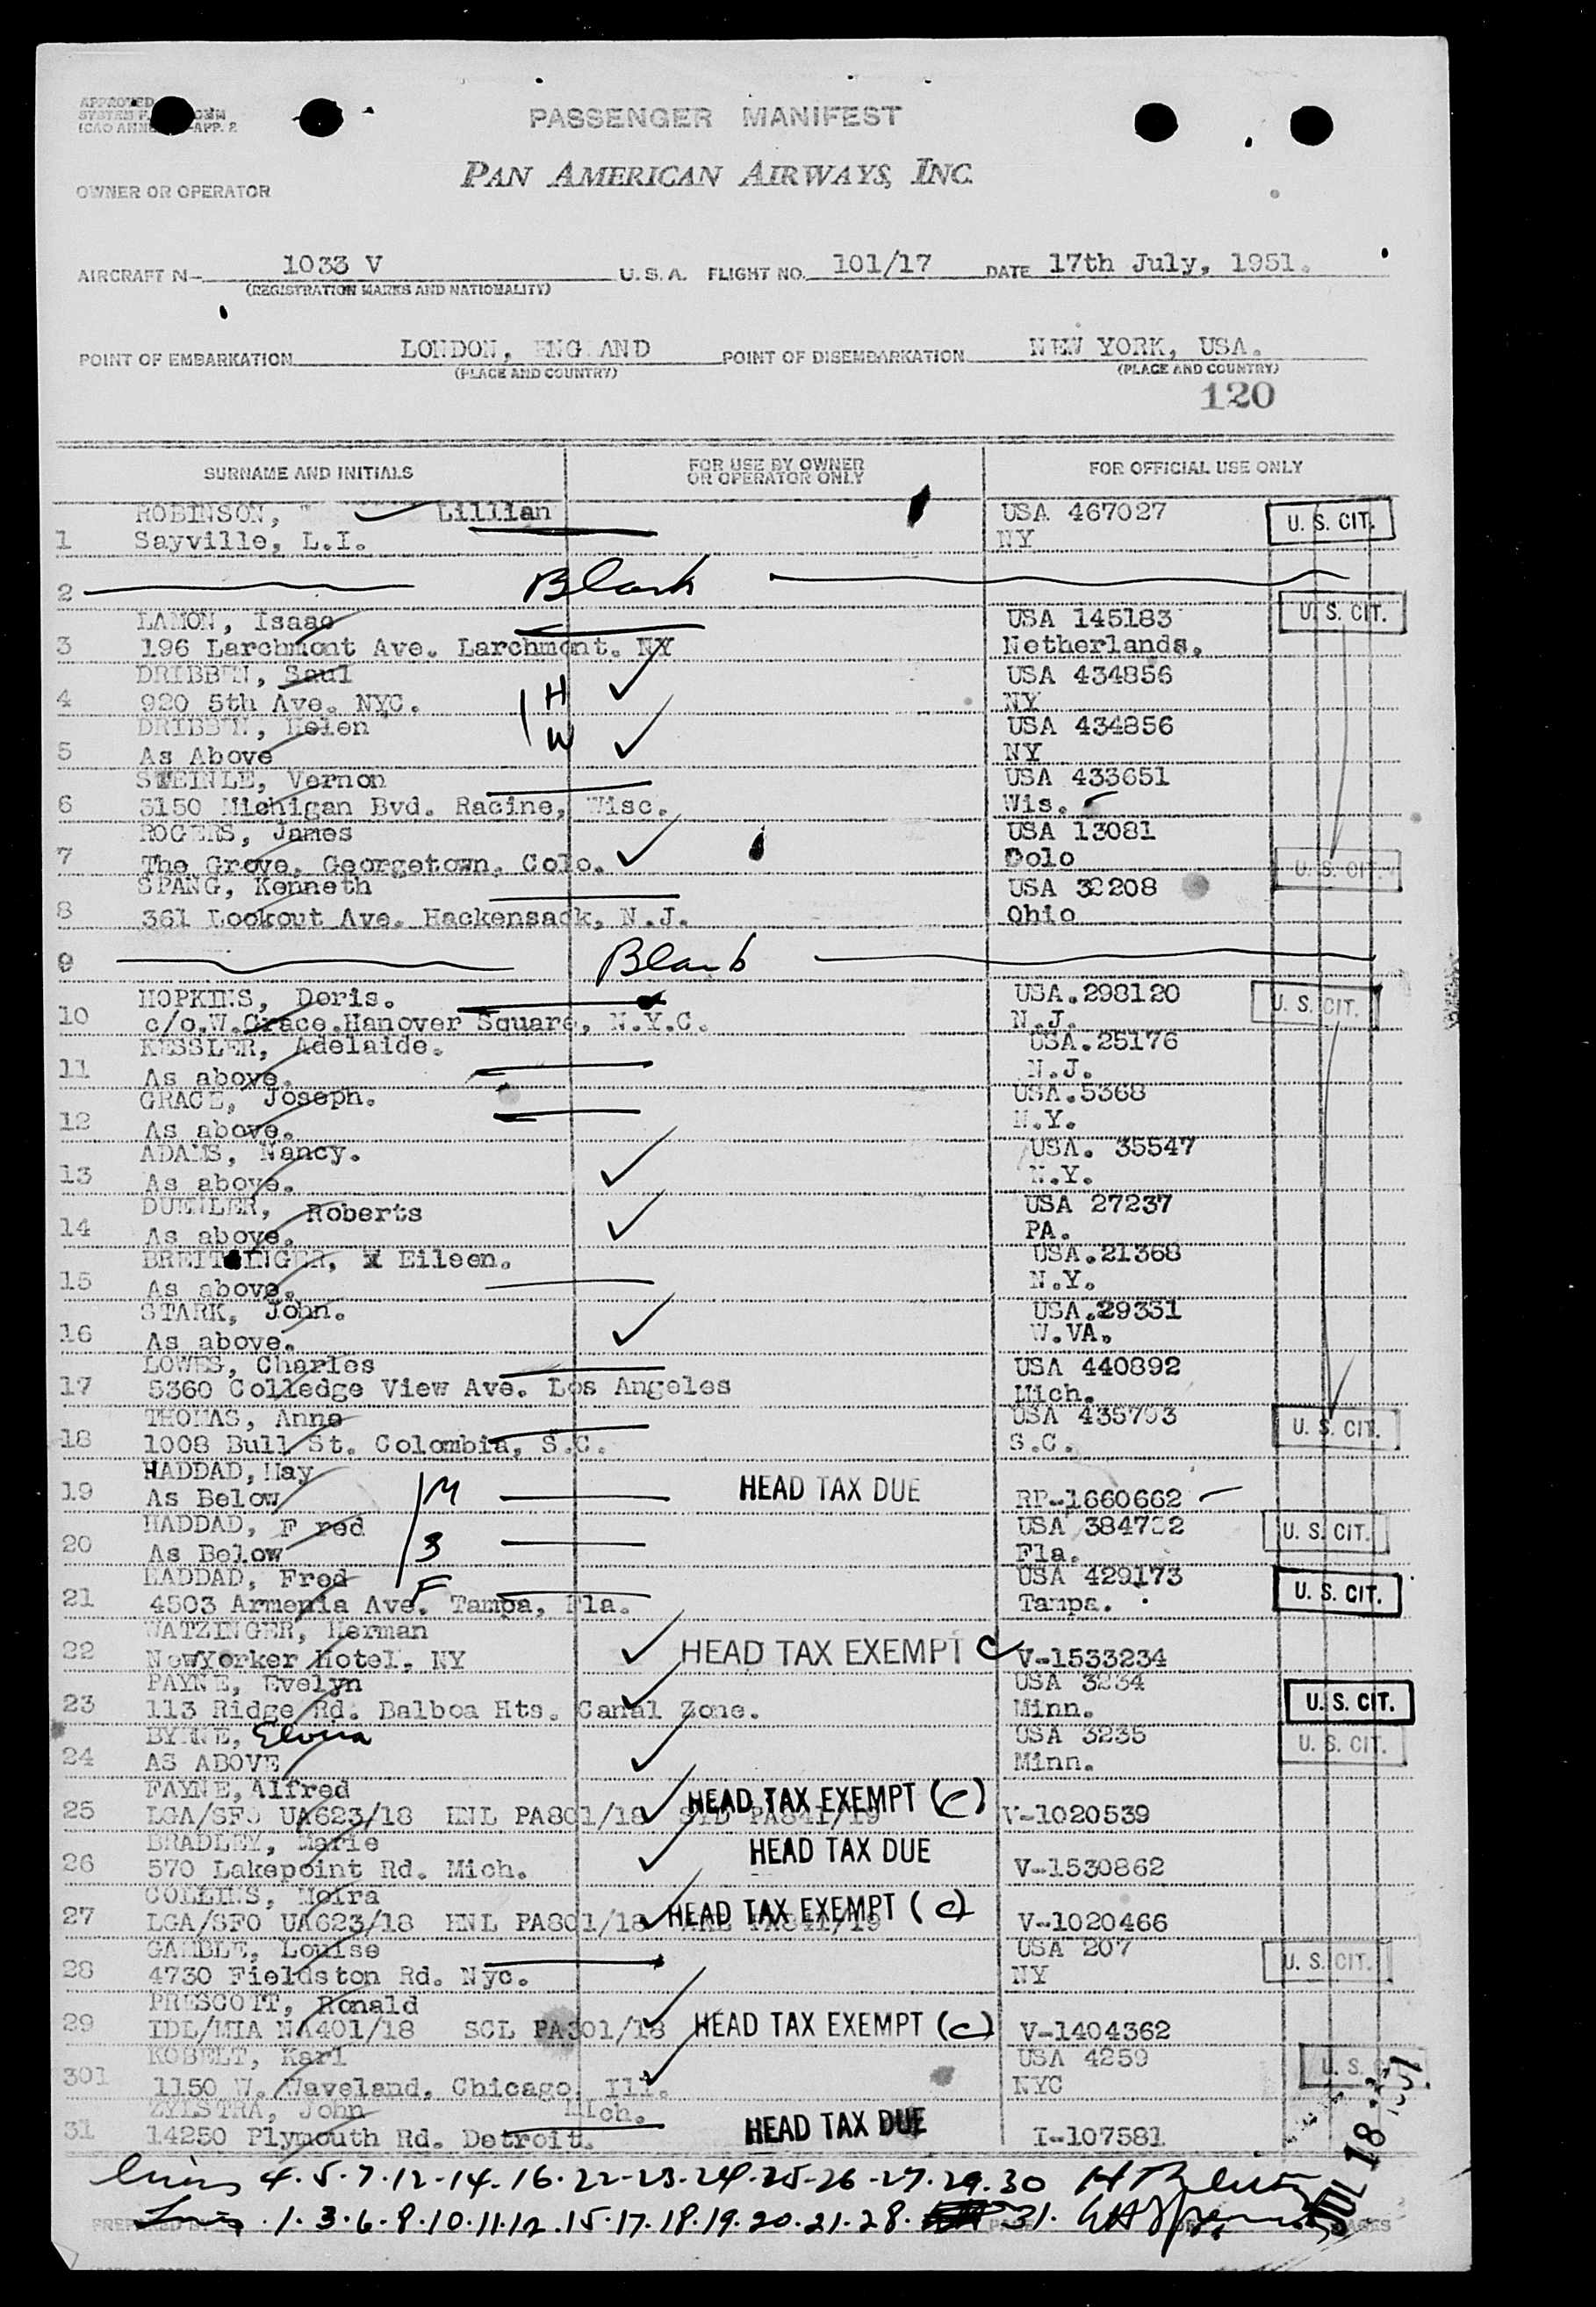 APPROVED
SYSTEM F.
ICAO ANNE -APP. 2
PASSENGER MANIFEST
PAN AMERICAN AIRWAYS, INC.
OWNER OR OPERATOR
AIRCRAFT N- 1033 V U.S.A. FLIGHT NO. 101/17 DATE 17th July, 1951.
(REGISTRATION MARKS AND NATIONALITY)
POINT OF EMBARKATION LONDON, ENG AND POINT OF DISEMBARKATION NEW YORK, USA.
(PLACE AND COUNTRY) (PLACE AND COUNTRY)
120
SURNAME AND INITIALS FOR USE BY OWNER OR OPERATOR ONLY FOR OFFICIAL USE ONLY
ROBINSON, Lillian USA 467027 U. S. CIT.
1 Sayville, L.I. NY
2 Blank
LAMON, Isaac USA 145183 U. S. CIT.
3 196 Larchmont Ave. Larchmont. NY Netherlands.
DRIBBEN, Saul USA 434856
4 920 5th Ave. NYC. H NY
DRIBBEN, Helen USA 434856
5 As Above W NY
STEINLE, Vernon USA 433651
6 3150 Michigan Bvd. Racine, Wisc. Wis.
ROGERS, James USA 13081
7 The Grove, Georgetown, Colo. Colo U. S. CIT.
SPANG, Kenneth USA 32208
8 361 Lookout Ave. Hackensack, N.J. Ohio
9 Blank
HOPKINS, Doris. USA.298120 U. S. CIT.
10 c/o.W.Grace.Hanover Square, N.Y.C. N.J.
KESSLER, Adelaide. USA.25176
11 As above. N.J.
GRACE, Joseph. USA.5368
12 As above. N.Y.
ADAMS, Nancy. USA. 35547
13 As above. N.Y.
DUENLER, Roberts USA 27237
14 As above. PA.
BREIT INGER, Eileen. USA.21368
15 As above. N.Y.
STARK, John. USA.29331
16 As above. W.VA.
LOWES, Charles USA 440892
17 5360 Colledge View Ave. Los Angeles Mich.
THOMAS, Anne USA 435793 U. S. CIT.
18 1008 Bull St. Colombia, S.C. S.C.
HADDAD, May
19 As Below M HEAD TAX DUE RP-1660662
HADDAD, F red USA 384732 U. S. CIT.
20 As Below S Fla.
HADDAD, Fred USA 429173 U. S. CIT.
21 4503 Armenia Ave. Tampa, Fla. F Tampa.
WATZINGER, Herman
22 NewYorker Hotel. NY HEAD TAX EXEMPT C V-1533234
PAYNE, Evelyn USA 3234 U. S. CIT.
23 113 Ridge Rd. Balboa Hts. Canal Zone. Minn.
BYRNE, Elvira USA 3235 U. S. CIT.
24 AS ABOVE Minn.
FAYNE, Alfred
25 LGA/SFO UA623/18 HNL PA801/18 SYD PA841/19 HEAD TAX EXEMPT (C) V-1020539
BRADLEY, Marie
26 570 Lakepoint Rd. Mich. HEAD TAX DUE V-1530862
COLLINS, Moira
27 LGA/SFO UA623/18 HNL PA801/18 PA841/19 HEAD TAX EXEMPT (C) V-1020466
GAMBLE, Louise USA 207 U. S. CIT.
28 4730 Fieldston Rd. Nyc. NY
PRESCOTT, Ronald
29 IDL/MIA NA401/18 SCL PA301/18 HEAD TAX EXEMPT (C) V-1404362
KOBELT, Karl USA 4259 U. S. C
301 1150 W. Waveland, Chicago, Ill. NYC
ZYLSTRA, John Mich.
31 14250 Plymouth Rd. Detroit. HEAD TAX DUE I-107581
Lines 4.5.7.12-14.16.22-23-24-25-26-27.29.30
Lines 1.3.6.8.10.11.12.15.17.18.19.20.21.28. 31.
JUL 18 1951
PREPARED BY PAGE OF PAGES